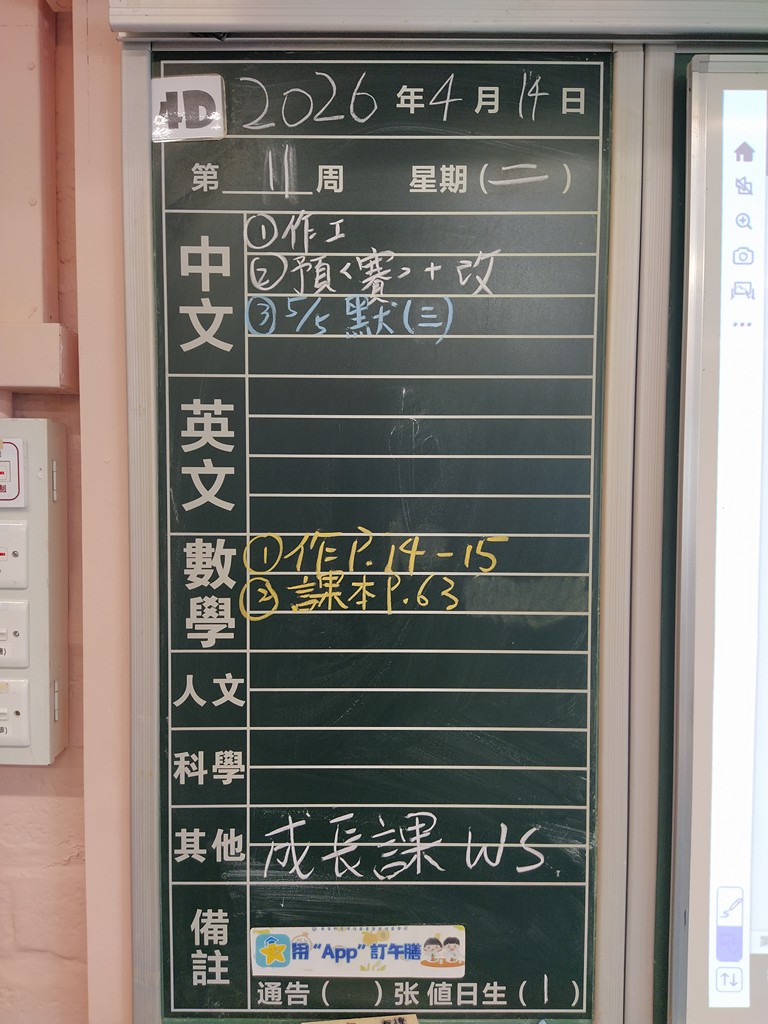 4D 2026 年 4 月 14 日
第 11 周 星期 (二)
中文
①作工
②預<賽>+改
③5/5 默(三)
英文
數學
①作P.14-15
②課本P.63
人文
科學
其他
成長課 WS
備註
用“App”訂午膳
通告( )张 值日生(1)